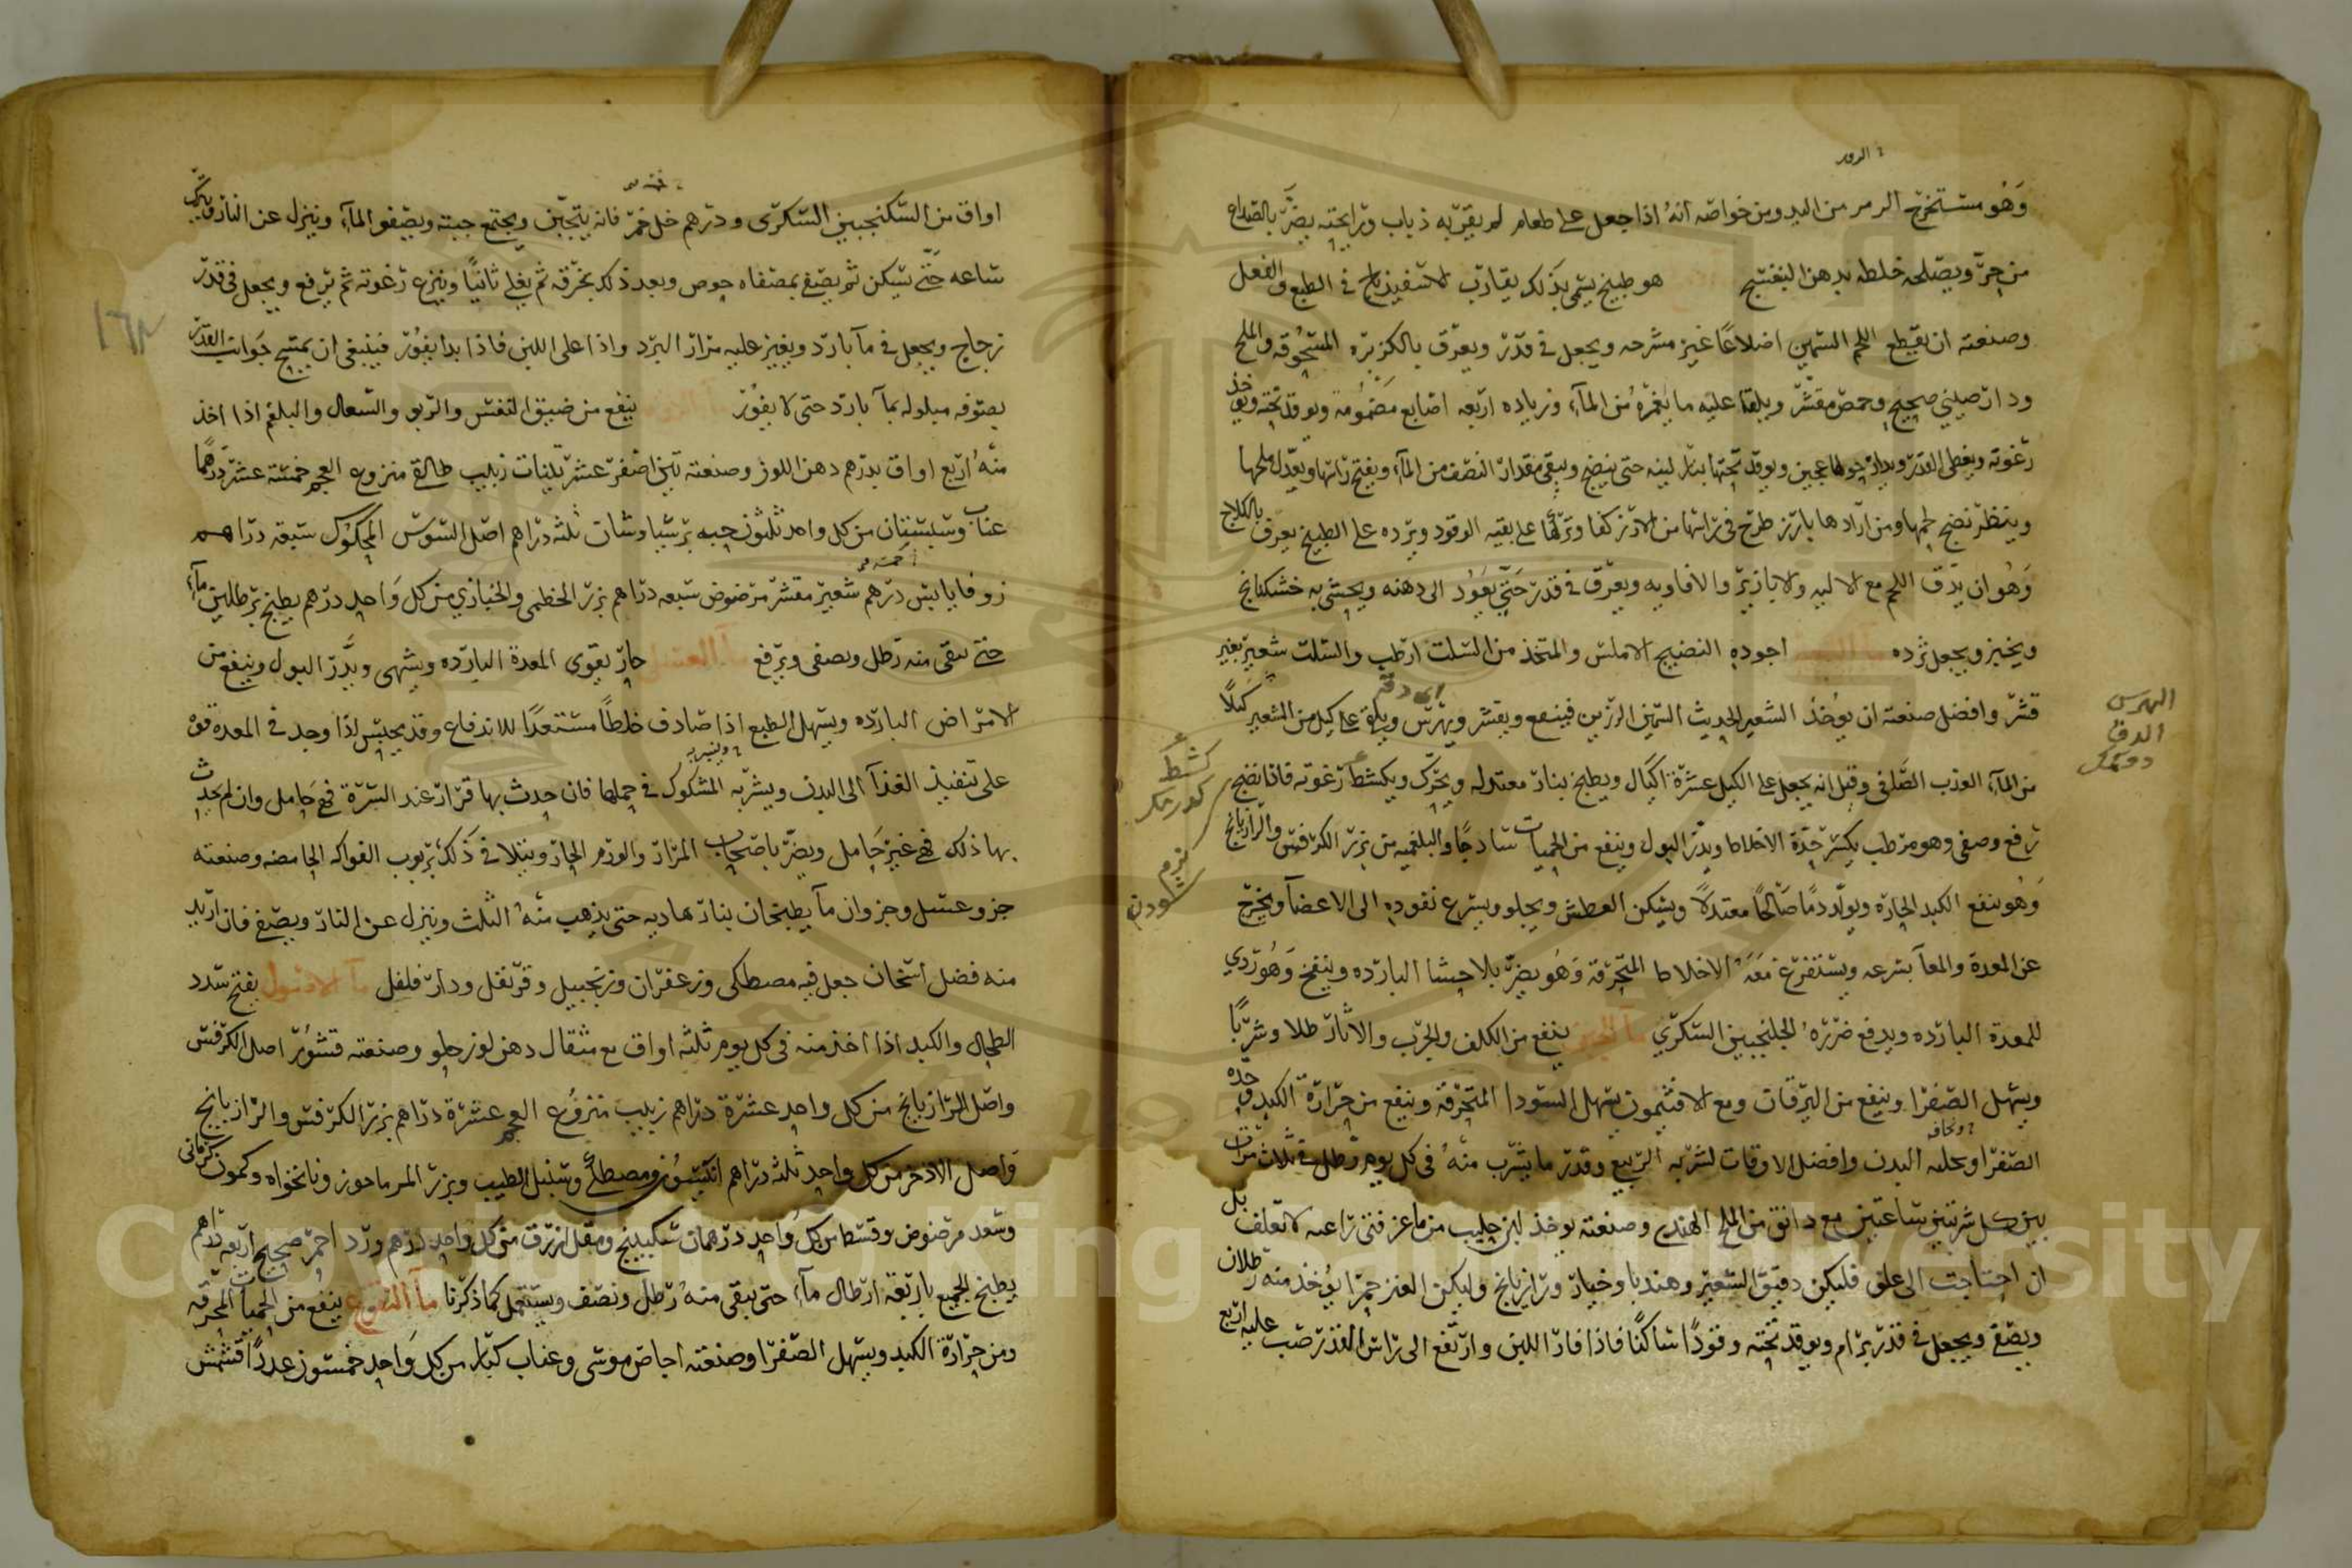 وهو مستخرج الدسم من اللبد ومن خواصه انه اذا جعل على طعام لم يقربه ذباب ورايحته يضر بالصداع
من حر ويصلحه خلطه بدهن البنفسج هو طبيخ يسمى بذلك يقارب الاسفيذباج في الطبع والفعل
وصنعته ان يقطع اللحم السمين اضلاعا غير مشرحه ويجعل في قدر ويعرق بالكزبره المسحوقه والملح
ودارصيني صحيح وحمص مقشر ويلقا عليه ما يغمره من الماء وزياده اربعه اصابع مضمومة ويوقد تحته ويوخذ
رغوته ويغطى القدر ويدار حولها عجين ويوقد تحتها بنار لينه حتى ينضج ويبقى مقدار النصف من الماء ويفتح راسها ويعدل ملحها
وينظر نضج لحمها ومن ارادها بارز طرح في راسها من الارز كفا وتركها على بقيه الوقود ويرده على الطبيخ يعرف
وهو ان يدق اللحم مع الاليه والابازير والافاويه ويعرق في قدر حتى يعود الى دهنه ويحشى به خشكنانج
ويخبز ويجعل ثرده ما الشعير اجوده النضيج الاملس والمتخذ من السلت ارطب والسلت شعير بغير
قشر وافضل صنعته ان يوخذ الشعير الحديث السمين الرزين فينقع ويقشر ويهرس ويلقى على كيل من الشعير كيلا
من الماء العذب الصافي وقيل انه يجعل على الكيل عشرة اكيال ويطبخ بنار معتدله ويحرك ويكشط رغوته فاذا نضج
رفع وصفى وهو مرطب يكسر حدة الاخلاط ويدر البول وينفع من الحميات ساذجا والبلغميه من بزر الكرفس والرازيانج
وهو ينفع الكبد الحاره ويولد دما صالحا معتدلا ويسكن العطش ويجلو ويسرع نفوده الى الاعضا ويخرج
عن المعدة والمعا بسرعه ويستفرغ معه الاخلاط المحرقة وهو يضر بالاحشا البارده وينفخ وهو ردي
للمعدة البارده ويدفع ضرره الجلنجبين السكري ما الجبن ينفع من الكلف والجرب والاثار طلا وشربا
ويسهل الصفرا وينفع من اليرقان ومع الافتيمون يسهل السودا المحرقه وينفع من حرارة الكبد وحده
الصفرا وبحله البدن وافضل الاوقات لشربه الربيع وقدر ما يشرب منه في كل يوم رطل في ثلاث مرات
بين كل شربتين ساعتين مع دانق من الملح الهندي وصنعته يوخذ لبن حليب من ماعز فتى راعيه لا تعلف بل
ان احتاجت الى علف فليكن دقيق الشعير وهندبا وخيار ورازيانج وليكن العنز حمرا يؤخذ منه رطلان
ويصفى ويجعل في قدر برام ويوقد تحته وقودا ساكنا فاذا فار اللبن وارتفع الى راس القدر صب عليه اربع
الهرس
الدق
كشط
اواق من السكنجبين السكرى ودرهم خل خمر فانه يتجبن ويجتمع جبنه ويصفوا الماء وينزل عن النار ويترك
ساعه حتى يسكن ثم يصفى بمصفاه خوص وبعد ذلك بخرقه ثم يغلى ثانيا وينزع رغوته ثم يرفع ويجعل في قدر
زجاج ويجعل في ما بارد ويغير عليه مرار البرد واذا اغلى اللبن فاذا بدا يفور فينبغى ان يمسح جوانب القدر
بصوفه مبلوله بما بارد حتى لا يفور ينفع من ضيق النفس والربو والسعال والبلغم اذا اخذ
منه اربع اواق بدرهم دهن اللوز وصنعته تين اصفر عشر تينات زبيب طايفى منزوع العجم خمسة عشر درهما
عناب وسبستان من كل واحد ثلثون حبه برسياوشان ثلثه دراهم اصل السوس المحكوك سبعه دراهم
زوفا يابس درهم شعير مقشر مرضوض سبعه دراهم بزر الخطمى والخبازي من كل واحد درهم يطبخ برطلين ماء
حتى يبقى منه رطل ويصفى ويرفع ما العسل حار يقوى المعدة البارده ويشهى ويدر البول وينفع من
الامراض البارده ويسهل الطبع اذا صادف خلطا مستعدا للاندفاع وقد يحبس اذا وجد في المعدة قوه
على تنفيذ الغذا الى البدن ويشربه المشكوك في حملها فان حدث بها قراقر عند السرة فهي حامل وان لم يحدث
بها ذلك فهي غير حامل ويضر باصحاب المرار والورم الحار ويتلافى ذلك بربوب الفواكه الحامضه وصنعته
جزو عسل وجزوان ما يطبخان بنار هاديه حتى يذهب منه الثلث وينزل عن النار ويصفى فان اريد
منه فضل اسخان جعل فيه مصطكى وزعفران وزنجبيل وقرنفل ودارفلفل ما الاصول يفتح سدد
الطحال والكبد اذا اخذ منه في كل يوم ثلثه اواق مع مثقال دهن لوز حلو وصنعته قشور اصل الكرفس
واصل الرازيانج من كل واحد عشرة دراهم زبيب منزوع العجم عشرة دراهم بزر الكرفس والرازيانج
واصل الاذخر من كل واحد ثلثه دراهم انيسون ومصطكى وسنبل الطيب وبزر المرماحوز ونانخواه وكمون كرمانى
وسعد مرضوض وقسط من كل واحد درهمان سكبينج ومقل ازرق من كل واحد درهم ورد احمر صحيح اربعه دراهم
يطبخ الجميع باربعة ارطال ماء حتى يبقى منه رطل ونصف ويستعمل كما ذكرنا ما النقوع ينفع من الحميات المحرقه
ومن حرارة الكبد ويسهل الصفرا وصنعته اجاص موسى وعناب كبار من كل واحد خمسون عددا قشمش
Copyright © King Saud University
1957